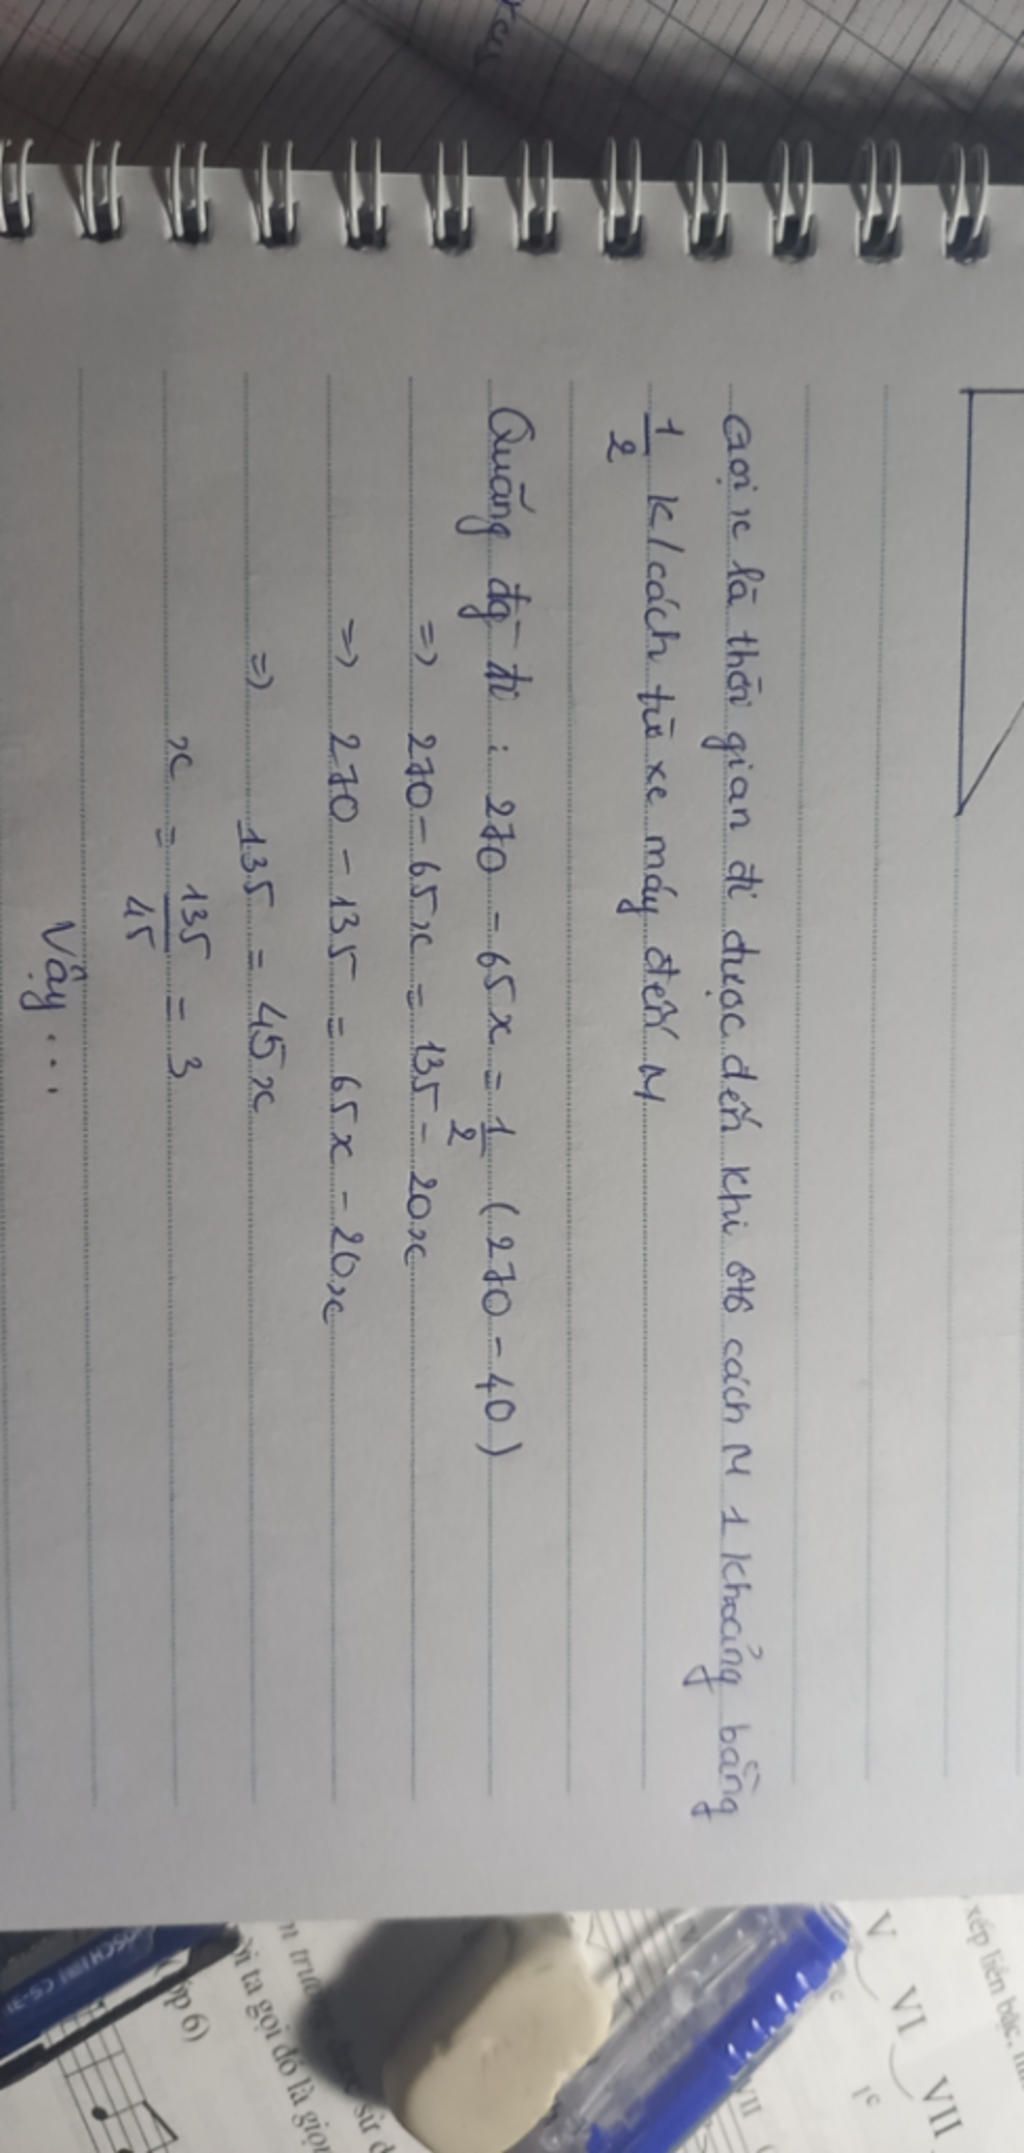 Gọi x là thời gian đi được đến khi ôtô cách M 1 khoảng bằng
1/2 k/cách từ xe máy đến M
Quãng đg đi : 270 - 65x = 1/2 (270 - 40)
=> 270 - 65x = 135 - 20x
=> 270 - 135 = 65x - 20x
=> 135 = 45x
x = 135/45 = 3
Vậy ...
xếp liền bậc,
V VI VII
1c
VII
ta gọi đó là giọn
lớp 6)